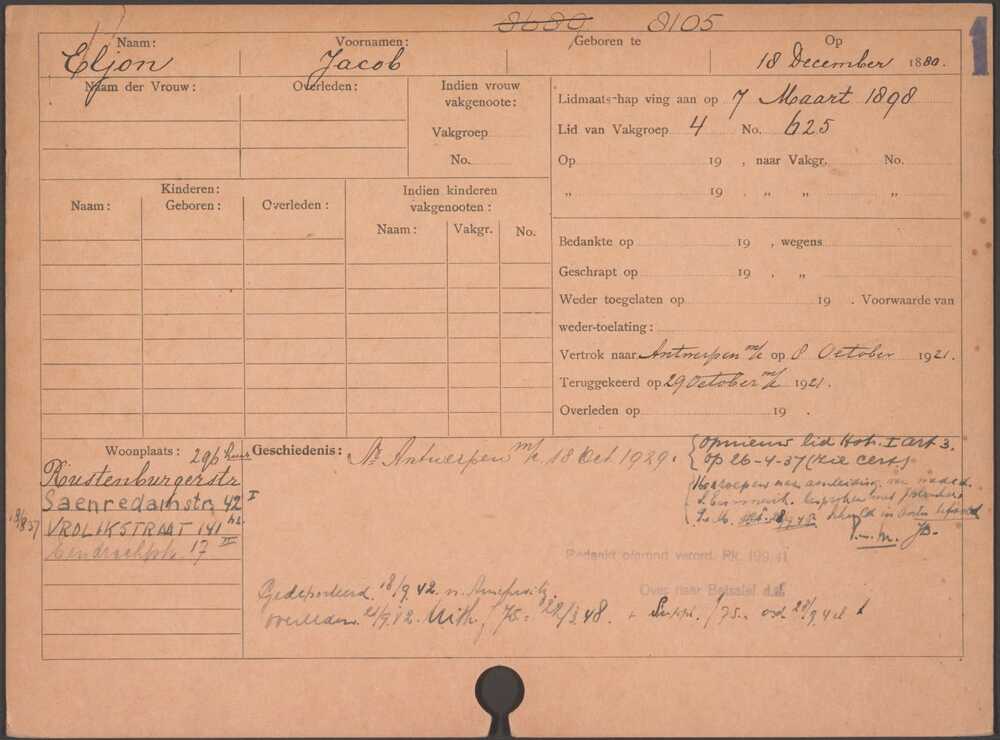 8680 8105
1
Naam: Voornamen: Geboren te Op
Eljon Jacob 18 December 1880.
Naam der Vrouw: Overleden:
Indien vrouw vakgenoote:
Vakgroep
No.
Lidmaatschap ving aan op 7 Maart 1898
Lid van Vakgroep 4 No. 625
Op 19 , naar Vakgr. No.
„ 19 , „ „ „
Kinderen:
Naam: Geboren: Overleden:
Indien kinderen vakgenooten:
Naam: Vakgr. No.
Bedankte op 19 , wegens
Geschrapt op 19 , „
Weder toegelaten op 19 . Voorwaarde van
weder-toelating:
Vertrok naar Antwerpen m/k op 8 October 1921.
Teruggekeerd op 29 October m/k 1921.
Overleden op 19 .
Woonplaats: 296 huis
Rustenburgerstr
Saenredamstr. 42 I
18/8 37 VROLIKSTRAAT 141 hs.
17 III
Geschiedenis: Nr Antwerpen m/k 18 Oct 1929.
opnieuw lid Hst. I art 3.
op 26-4-37 (zie cert)
Bedankt ofgrond verord. Rk. 199/41
Over naar Betsalel d.d.
Gedeporteerd 18/9 42 n. Auschwitz
overleden 21/9 42. Uitk. f 75.- 22/3 48. +